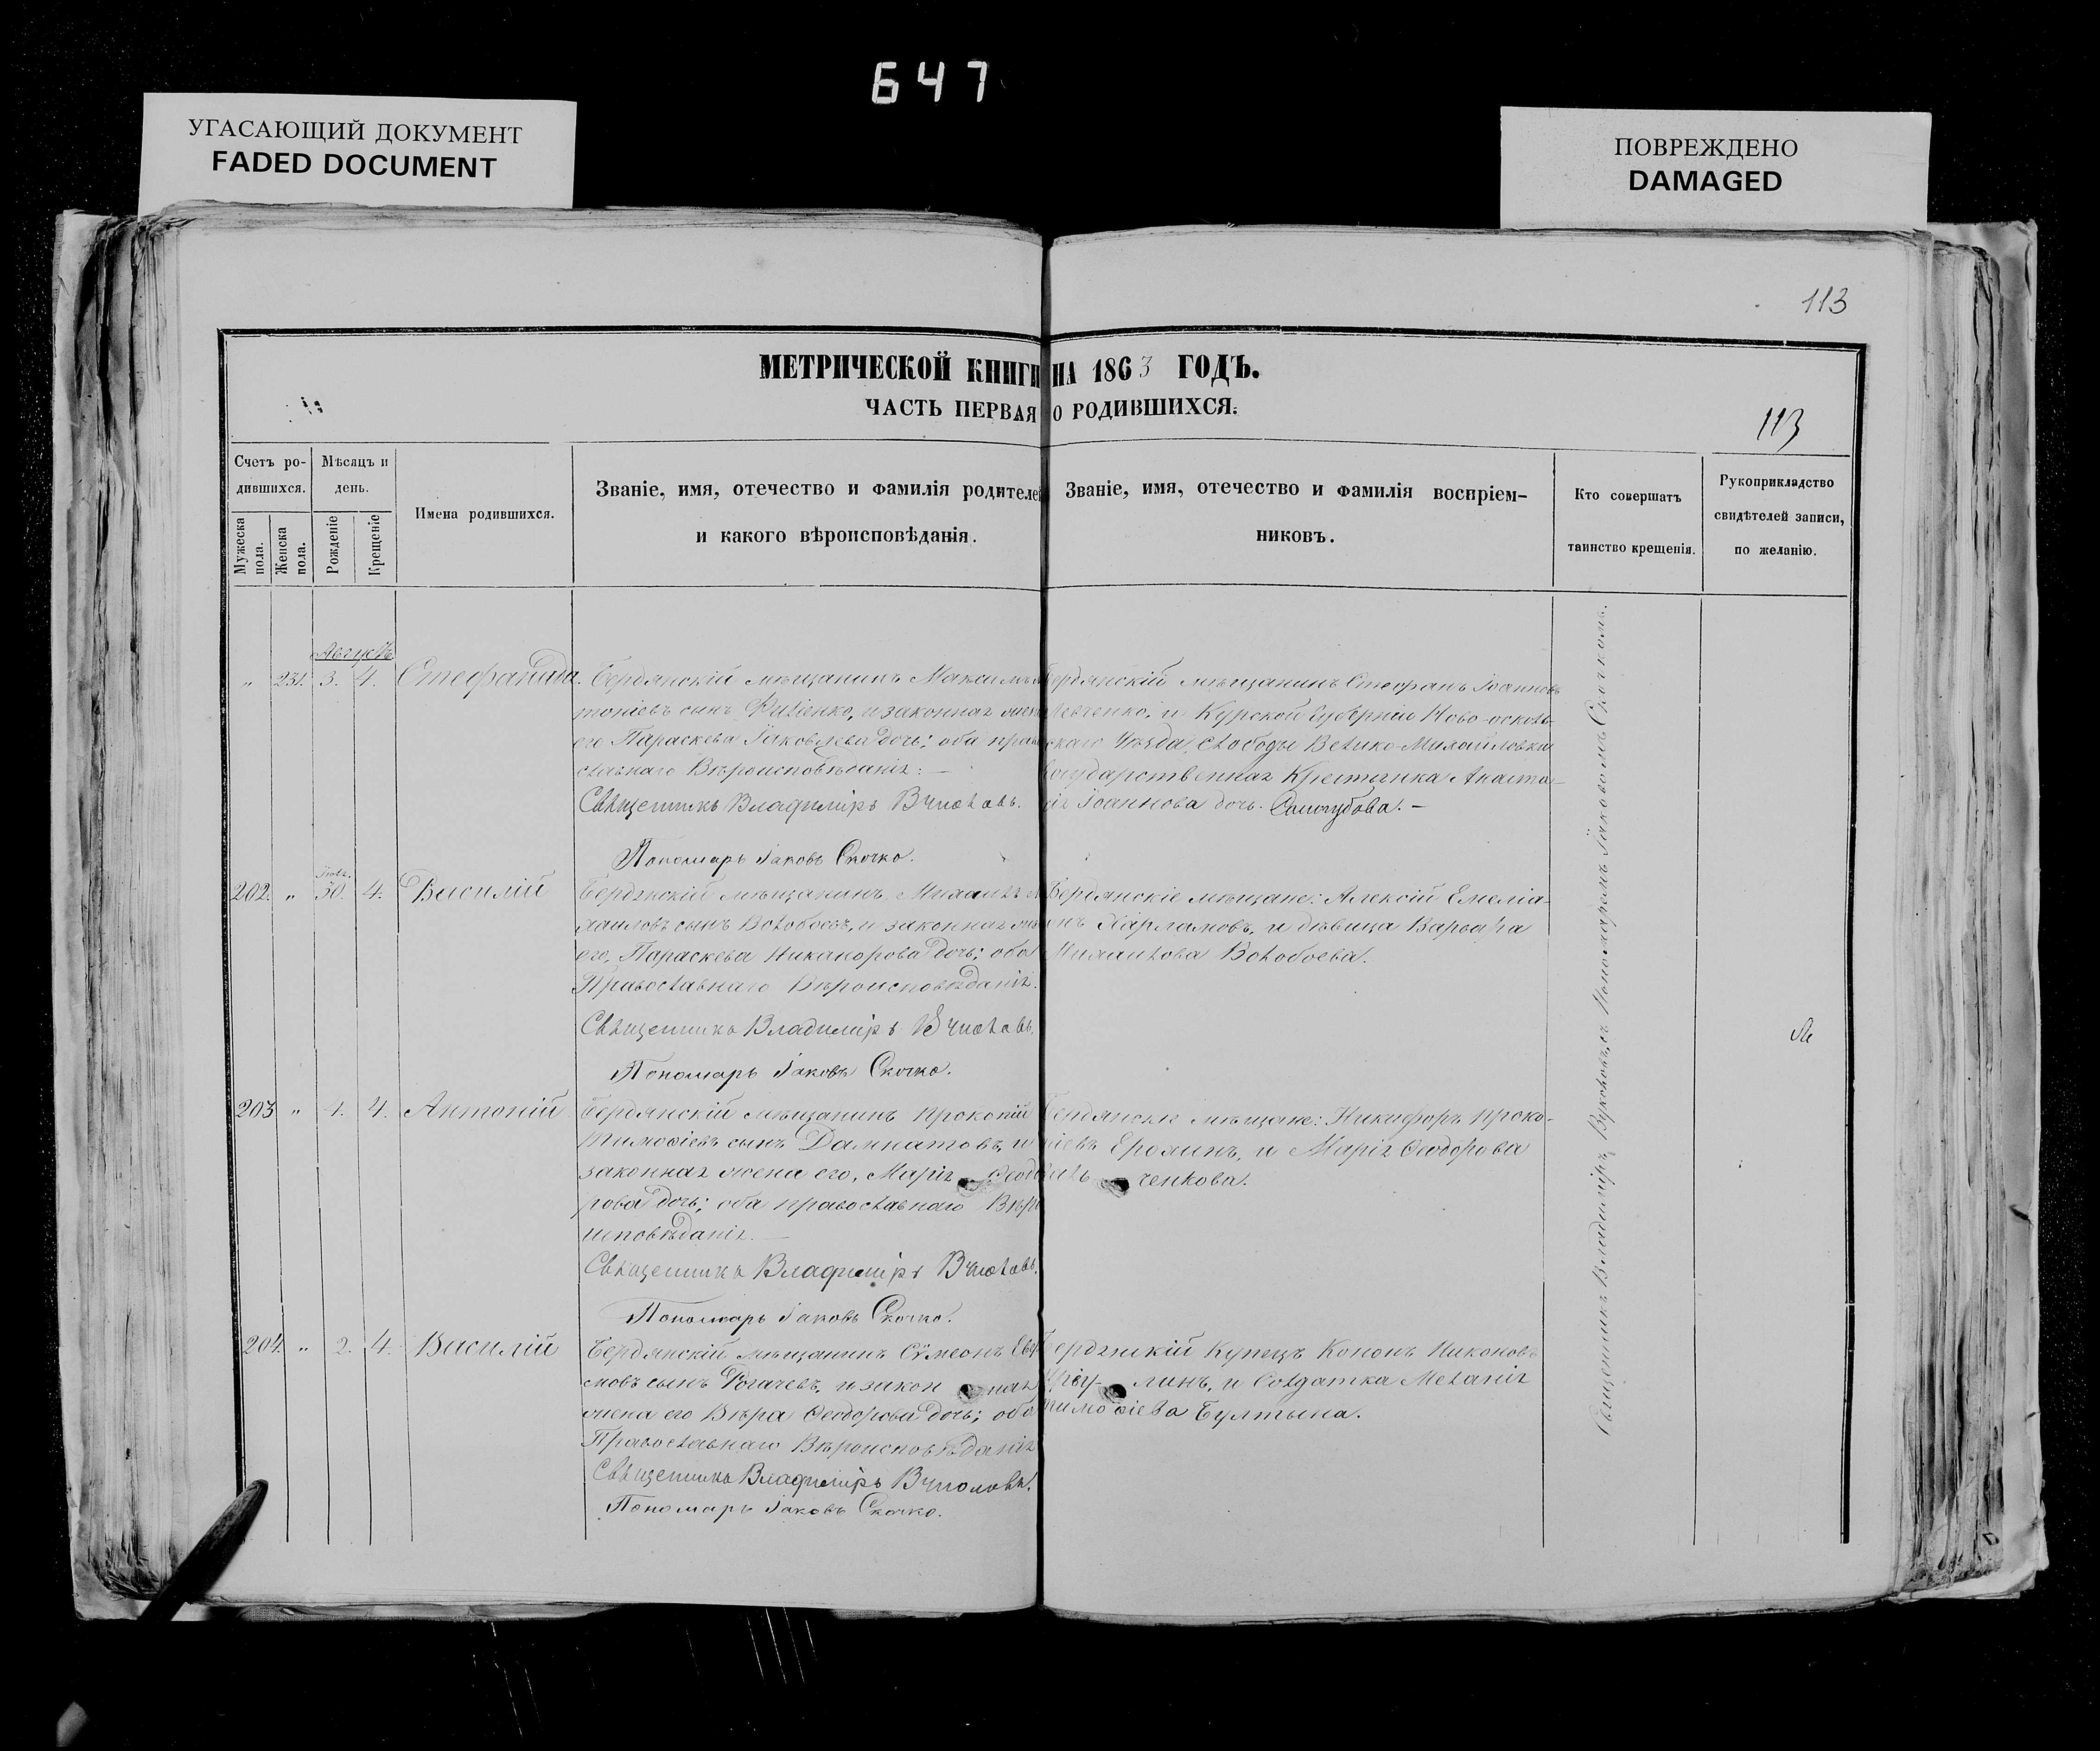 647
УГАСАЮЩИЙ ДОКУМЕНТ
FADED DOCUMENT
ПОВРЕЖДЕНО
DAMAGED
113
МЕТРИЧЕСКОЙ КНИГИ НА 1863 ГОДЪ.
ЧАСТЬ ПЕРВАЯ О РОДИВШИХСЯ.
113
Счетъ ро-
дившихся.
Мужеска пола.
Женска пола.
Мѣсяцъ и
день.
Рожденіе
Крещеніе
Имена родившихся.
Званіе, имя, отечество и фамилія родителей
и какого вѣроисповѣданія.
Званіе, имя, отечество и фамилія воспріем-
никовъ.
Кто совершатъ
таинство крещенія.
Рукоприкладство
свидѣтелей записи,
по желанію.
Августъ
„ 231. 3. 4. Стефанида.
Бердянскій мѣщанинъ Максимъ
тоніевъ сынъ и законная жена
его Параскева Іаковлева дочь; оба право
славнаго Вѣроисповѣданія: —
Священникъ Владиміръ
Пономарь Іаковъ Скочко.
Бердянскій мѣщанинъ Стефанъ Іоанновъ
Левченко, и Курской Губерніи Ново-осколь-
скаго Уѣзда, Слободы Велико-Михайловки
Государственная Крестьянка Анаста-
сія Іоаннова дочь. —
202. „ 30. 4. Василій
Бердянскій мѣщанинъ Михаилъ
хаиловъ сынъ Волобоевъ, и законная жена
его, Параскева Никанорова дочь; оба
Православнаго Вѣроисповѣданія.
Священникъ Владиміръ
Пономарь Іаковъ Скочко.
Бердянскіе мѣщане: Алексій Емеліа-
нъ Харламовъ, и дѣвица Варвара
Михаилова Волобоева.
203 „ 1. 4. Антоній
Бердянскій мѣщанинъ Прокопій
Тимоѳіевъ сынъ и
законная жена его, Марія Ѳеодо
рова дочь; оба православнаго Вѣро
исповѣданія. —
Священникъ Владиміръ
Пономарь Іаковъ Скочко.
Бердянскіе мѣщане: Никифоръ Проко-
піевъ Ерохинъ, и Марія Ѳеодорова
ченкова.
204. „ 2. 4. Василій
Бердянскій мѣщанинъ Сѵмеонъ
мовъ сынъ Рогачевъ, и закон ная
жена его Вѣра Ѳеодорова дочь; оба
Православнаго Вѣроисповѣданія
Священникъ Владиміръ
Пономарь Іаковъ Скочко.
Бердянскій Купецъ Кононъ Никоновъ
линъ, и Солдатка Меланія
Тимоѳіева Булгтына.
Священникъ Владиміръ съ Пономаремъ Іаковомъ Скочкомъ.